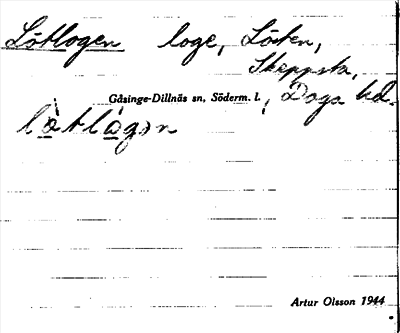 Lötlogen loge, Löten,
Skeppsta,
Gåsinge-Dillnäs sn, Söderm. l., Daga hd.
lö̀tlå̀gən
Artur Olsson 1944